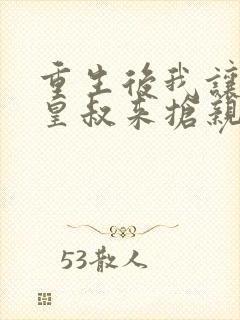 重生後我讓
皇叔來搶親
53散人